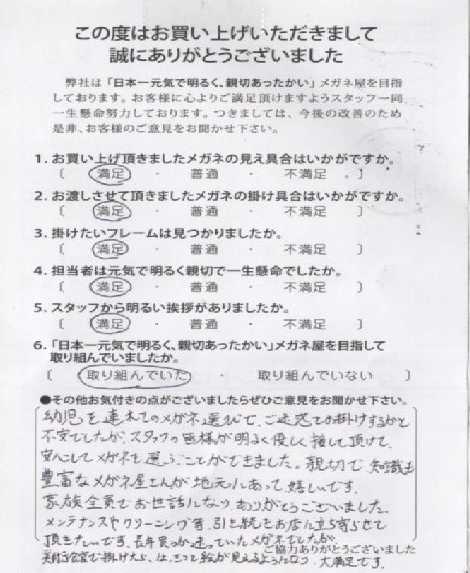 この度はお買い上げいただきまして
誠にありがとうございました
弊社は「日本一元気で明るく、親切あったかい」メガネ屋を目指
しております。お客様に心よりご満足頂けますようスタッフ一同
一生懸命努力しております。つきましては、今後の改善のため
是非、お客様のご意見をお聞かせ下さい。
1. お買い上げ頂きましたメガネの見え具合はいかがですか。
〔 満足 ・ 普通 ・ 不満足 〕
2. お渡しさせて頂きましたメガネの掛け具合はいかがですか。
〔 満足 ・ 普通 ・ 不満足 〕
3. 掛けたいフレームは見つかりましたか。
〔 満足 ・ 普通 ・ 不満足 〕
4. 担当者は元気で明るく親切で一生懸命でしたか。
〔 満足 ・ 普通 ・ 不満足 〕
5. スタッフから明るい挨拶がありましたか。
〔 満足 ・ 普通 ・ 不満足 〕
6.「日本一元気で明るく、親切あったかい」メガネ屋を目指して
取り組んでいましたか。
〔 取り組んでいた ・ 取り組んでいない 〕
●その他お気付きの点がございましたらぜひご意見をお聞かせ下さい。
幼児を連れてのメガネ選びで、ご迷惑をお掛けするかと
不安でしたが、スタッフの皆様が明るく優しく接して頂けて、
安心してメガネを選ぶことができました。親切で、知識も
豊富なメガネ屋さんが地元にあって嬉しいです。
家族全員でお世話になり、ありがとうございました。
メンテナンスやクリーニング等、引き続きお店に立ち寄らせて
頂きたいです。長年買っか迷っていたメガネでしたが、
ご協力ありがとうございました
で掛けたら、はっきりと絵が見えるようになり、大満足です。